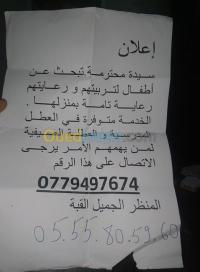 إعلان
سيدة محترمة تبحث عن
أطفال لتربيتهم و رعايتهم
رعاية تامة بمنزلها.
الخدمة متوفرة في العطل
المدرسية و العطلة الصيفية
لمن يهمهم الأمر يرجى
الاتصال على هذا الرقم
0779497674
المنظر الجميل القبة
05.55.80.59.60